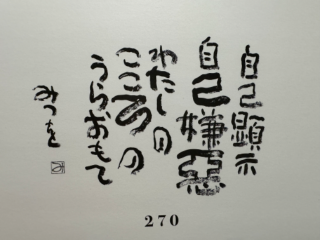 自己顕示
自己嫌悪
わたしの
こころの
うらおもて
みつを
270